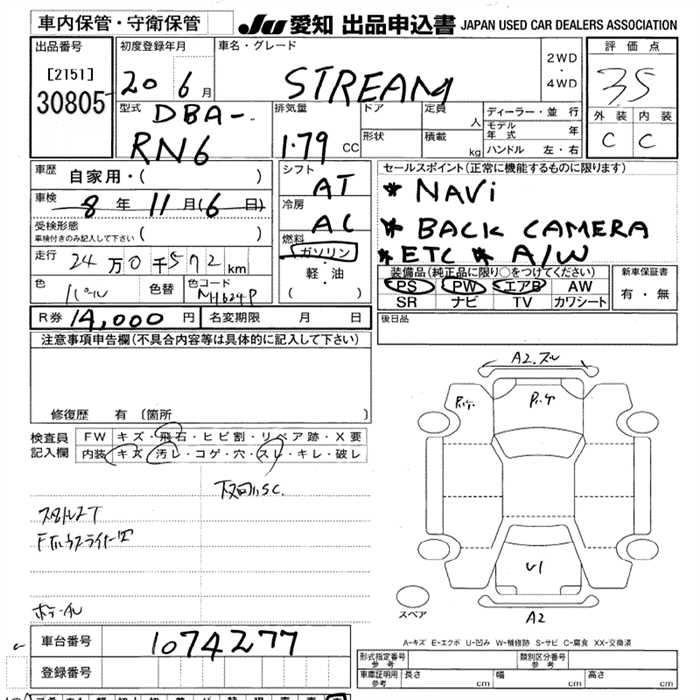 車内保管・守衛保管
JU 愛知 出品申込書 JAPAN USED CAR DEALERS ASSOCIATION
出品番号
[2151]
30805
初度登録年月
20 6 月
車名・グレード
STREAM
2WD
・
4WD
評価点
35
外装 内装
C C
型式
DBA-
RN6
排気量
1.79 CC
ドア
形状
定員 人
積載 kg
ディーラー・並行
モデル年式 年
ハンドル 左・右
車歴
自家用・( )
車検
8 年 11 月(6 日)
受検形態
車検付きのみ記入して下さい ( )
走行
24 万 0 千 572 km
色
パール
色替
色コード
NH624P
シフト
AT
冷房
AC
燃料
ガソリン
・
軽・油
( )
セールスポイント(正常に機能するものに限ります)
* NAVi
* BACK CAMERA
* ETC * A/W
装備品(純正品に限り○をつけてください)
PS PW エアB AW
SR ナビ TV カワシート
新車保証書
有・無
R券 14,000 円 名変期限 月 日
後日品
注意事項申告欄(不具合内容等は具体的に記入して下さい)
修復歴 有 (箇所 )
検査員
記入欄
FW キズ・飛石・ヒビ割・リペア跡・X要
内装 キズ・汚レ・コゲ・穴・スレ・キレ・破レ
A2.スレ
U1
A2
スペア
A-キズ E-エクボ U-凹み W-補修跡 S-サビ C-腐食 XX-交換済
車台番号 1074277
登録番号
形式指定番号
参考
類別区分番号
参考
車庫証明用
参考
長さ cm 幅 cm 高さ cm